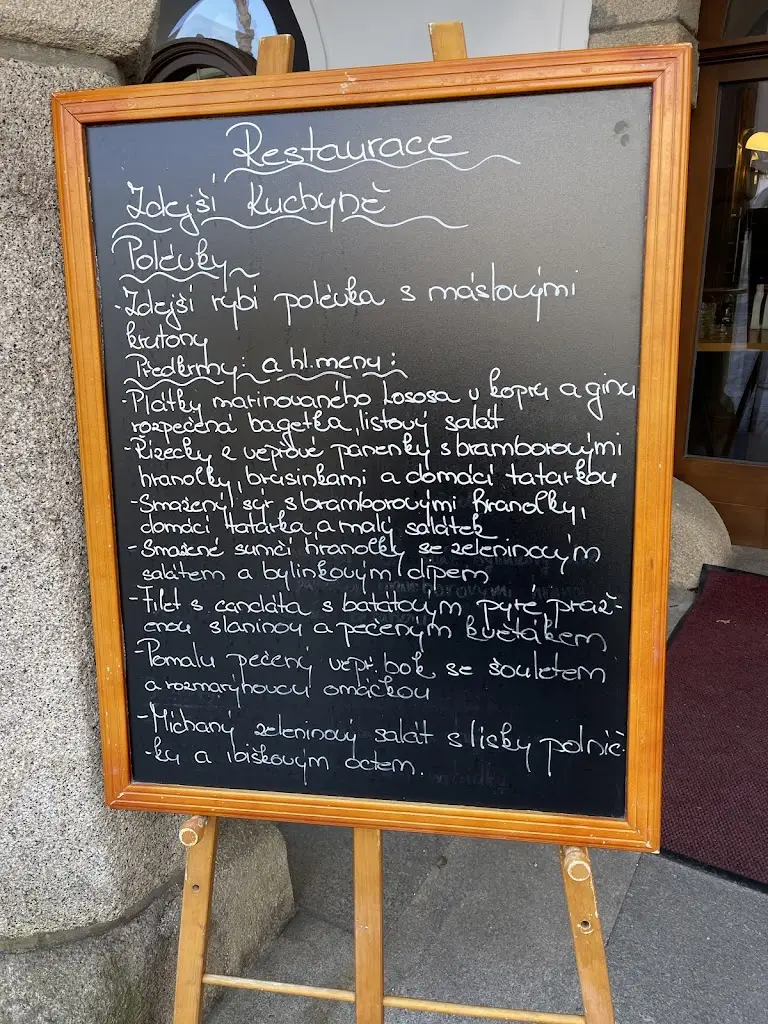 Restaurace
Zdejší Kuchyně
Polévky
- Zdejší rybí polévka s máslovými
krutony
Předkrmy: a hl. menu:
- Plátky marinovaného lososa v kopru a ginu
rozpečená bagetka, listový salát
- Řízečky z vepřové panenky s bramborovými
hranolky, brusinkami a domácí tatarkou
- Smažený sýr s bramborovými hranolky,
domácí tatarka, a malý salátek
- Smažené sumčí hranolky se zeleninovým
salátem a bylinkovým dipem
- Filet s candáta s batátovým pyré, praž-
enou slaninou a pečeným květákem
- Pomalu pečený vepř. bok se šouletem
a rozmarýnovou omáčkou
- Míchaný zeleninový salát s lísky polníč-
-ky a ibiškovým octem.